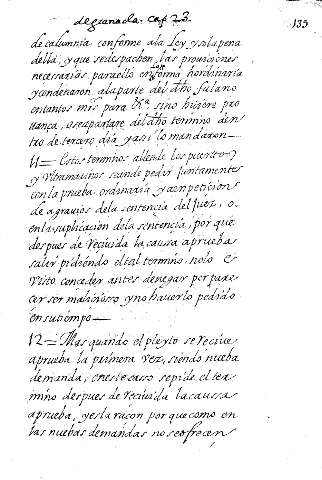 de granada. cap 23.
135
de calumnia conforme ala Ley y sila pena
della, y que sedespachen, las provisiones
necessarias paraello en forma hordinaria
y condenaron, ala parte del dho fulano
en tantos mrs para si no hiciere pro
banca, o se apartare del dho termino den
tro de tercero dia y asi lo mandaron
11 = Estos terminos allende los puertos
y Vltramarinos se ande pedir juntamentes
con la prueba ordinaria y con peticion
de agravios dela sentencia del Juez, o
en la suplicacion dela sentencia, por que
despues de reciuida la causa aprueba
salir pidiendo el tal termino, no lo e
visto conceder antes denegar por pare
cer ser malicioso y no hauerlo pedido
en su tiempo
12 = Mas quando el pleyto se reciue
aprueba la primera vez, siendo nueba
demanda, en este casso se pide el ter
mino despues de reciuida la caussa
aprueba, y es la raçon por que como en
las nuebas demandas no se ofrecen